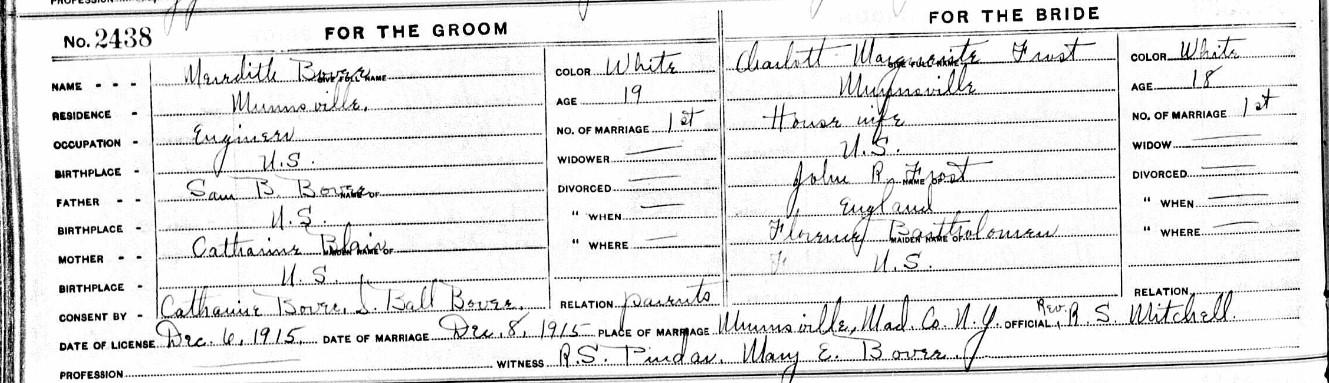 No. 2438 FOR THE GROOM FOR THE BRIDE
NAME - - - Meredith Bovee GIVE FULL NAME COLOR White Charlott Marguerite Frost GIVE FULL NAME COLOR White
RESIDENCE - Munnsville. AGE 19 Munnsville AGE 18
OCCUPATION - Engineer NO. OF MARRIAGE 1st House wife NO. OF MARRIAGE 1st
BIRTHPLACE - U.S. WIDOWER — U.S. WIDOW —
FATHER - - Sam B. Bovee NAME OF DIVORCED — John R. Frost NAME OF DIVORCED —
BIRTHPLACE - U.S. " WHEN — England " WHEN —
MOTHER - - Catharine Blair MAIDEN NAME OF " WHERE — Florence Bartholomew MAIDEN NAME OF " WHERE —
BIRTHPLACE - U.S. U.S.
CONSENT BY - Catharine Bovee, S. Ball Bovee. RELATION parents RELATION
DATE OF LICENSE Dec. 6, 1915. DATE OF MARRIAGE Dec. 8, 1915 PLACE OF MARRIAGE Munnsville, Mad Co. N.Y. OFFICIAL, Rev. R. S. Mitchell.
PROFESSION WITNESS R.S. Pindar. Mary E. Bovee